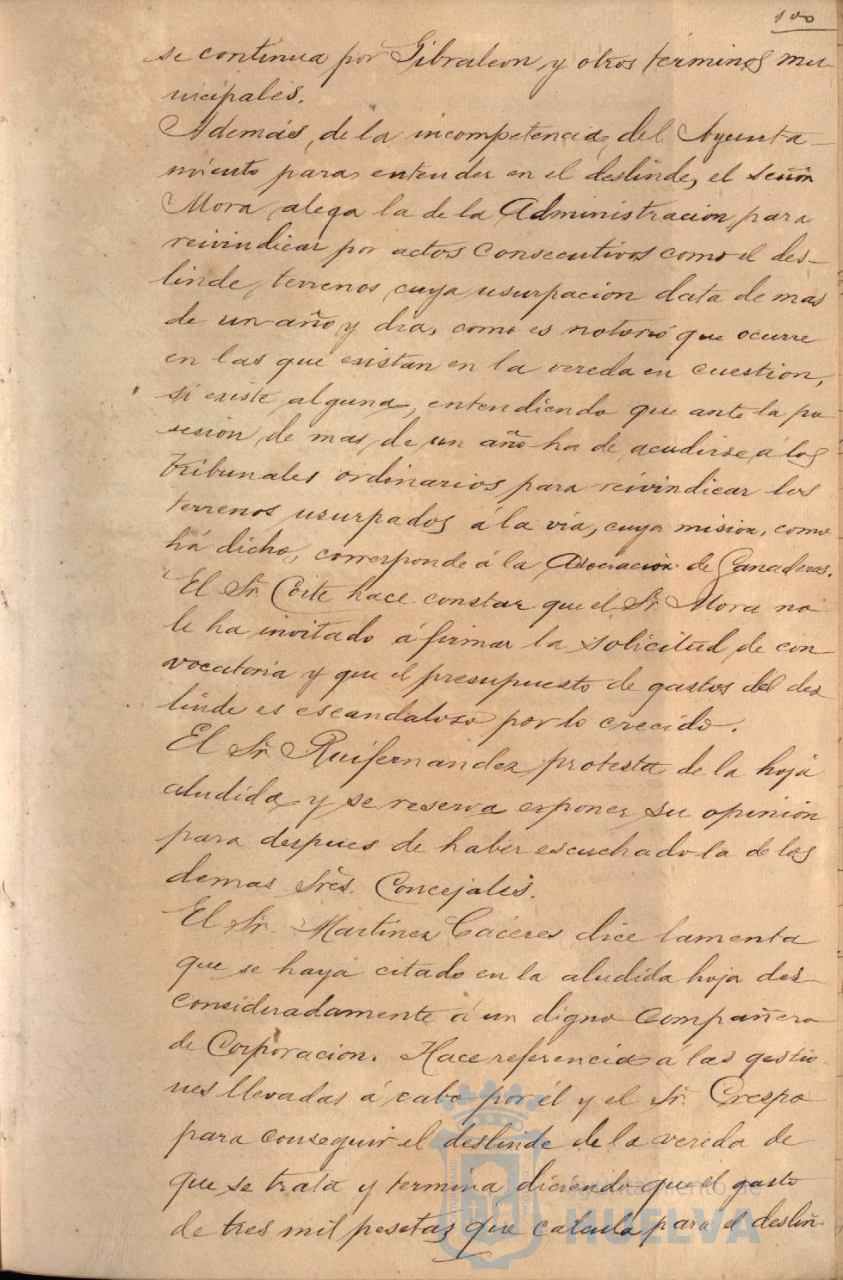 100
se continua por Gibraleon y otros términos mu-
nicipales.
Además, de la incompetencia, del Ayunta-
miento para entender en el deslinde, el señor
Mora alega la de la Administracion para
reivindicar por actos consecutivos como el des-
linde, terrenos cuya usurpacion data de mas
de un año y dia, como es notorio que ocurre
en las que existan en la vereda en cuestion,
si existe alguna, entendiendo que ante la po
sesión de mas de un año ha de acudirse á los
tribunales ordinarios para reivindicar los
terrenos usurpados á la via, cuya mision, como
há dicho, corresponde á la Asociación de Ganaderos.
El Sr. Coite hace constar que el Sr. Mora no
le ha invitado á firmar la solicitud de con-
vocatoria y que el presupuesto de gastos del des
linde es escandaloso por lo crecido.
El Sr. Ruifernandez protesta de la hoja
aludida y se reserva exponer su opinión
para despues de haber escuchado la de los
demas Sres. Concejales.
El Sr. Martinez Cáceres dice lamenta
que se haya citado en la aludida hoja des-
consideradamente á un digno compañero
de Corporacion. Hace referencia á las gestio
nes llevadas á cabo por él y el Sr. Crespo
para conseguir el deslinde de la vereda de
que se trata y termina diciendo que el gasto
de tres mil pesetas que calcula para el deslin-
Ayuntamiento de
HUELVA